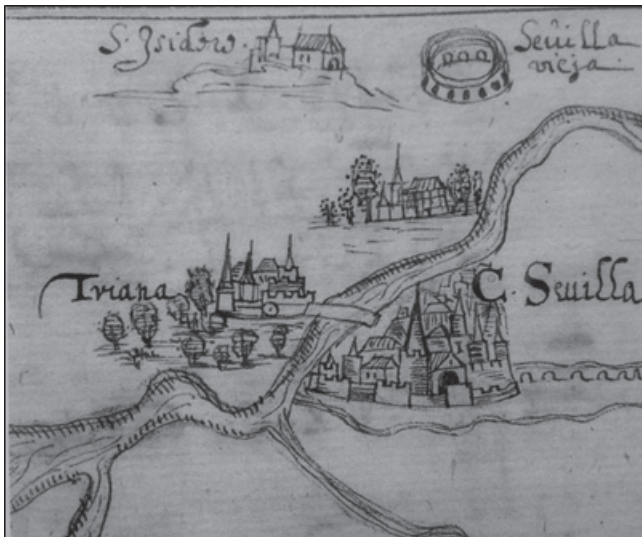 S. Isidoro.
Seuilla
vieja.
Triana
C. Seuilla